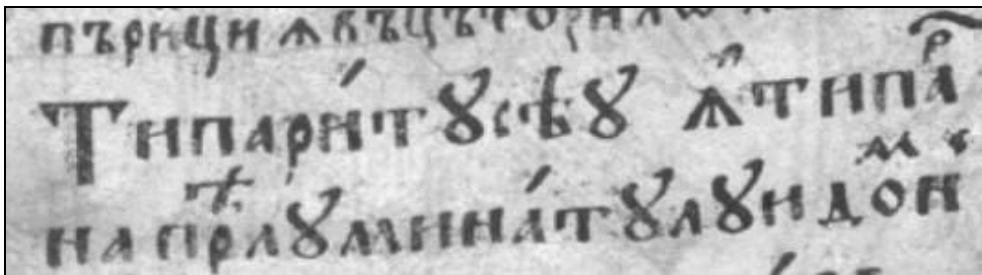 пърнци ꙟвъцъторилѡ
Типари́тꙋсѣꙋ ꙟ̑типаⷬ҇
на прⷺлꙋмина́тꙋлꙋи доⷨнⷭ